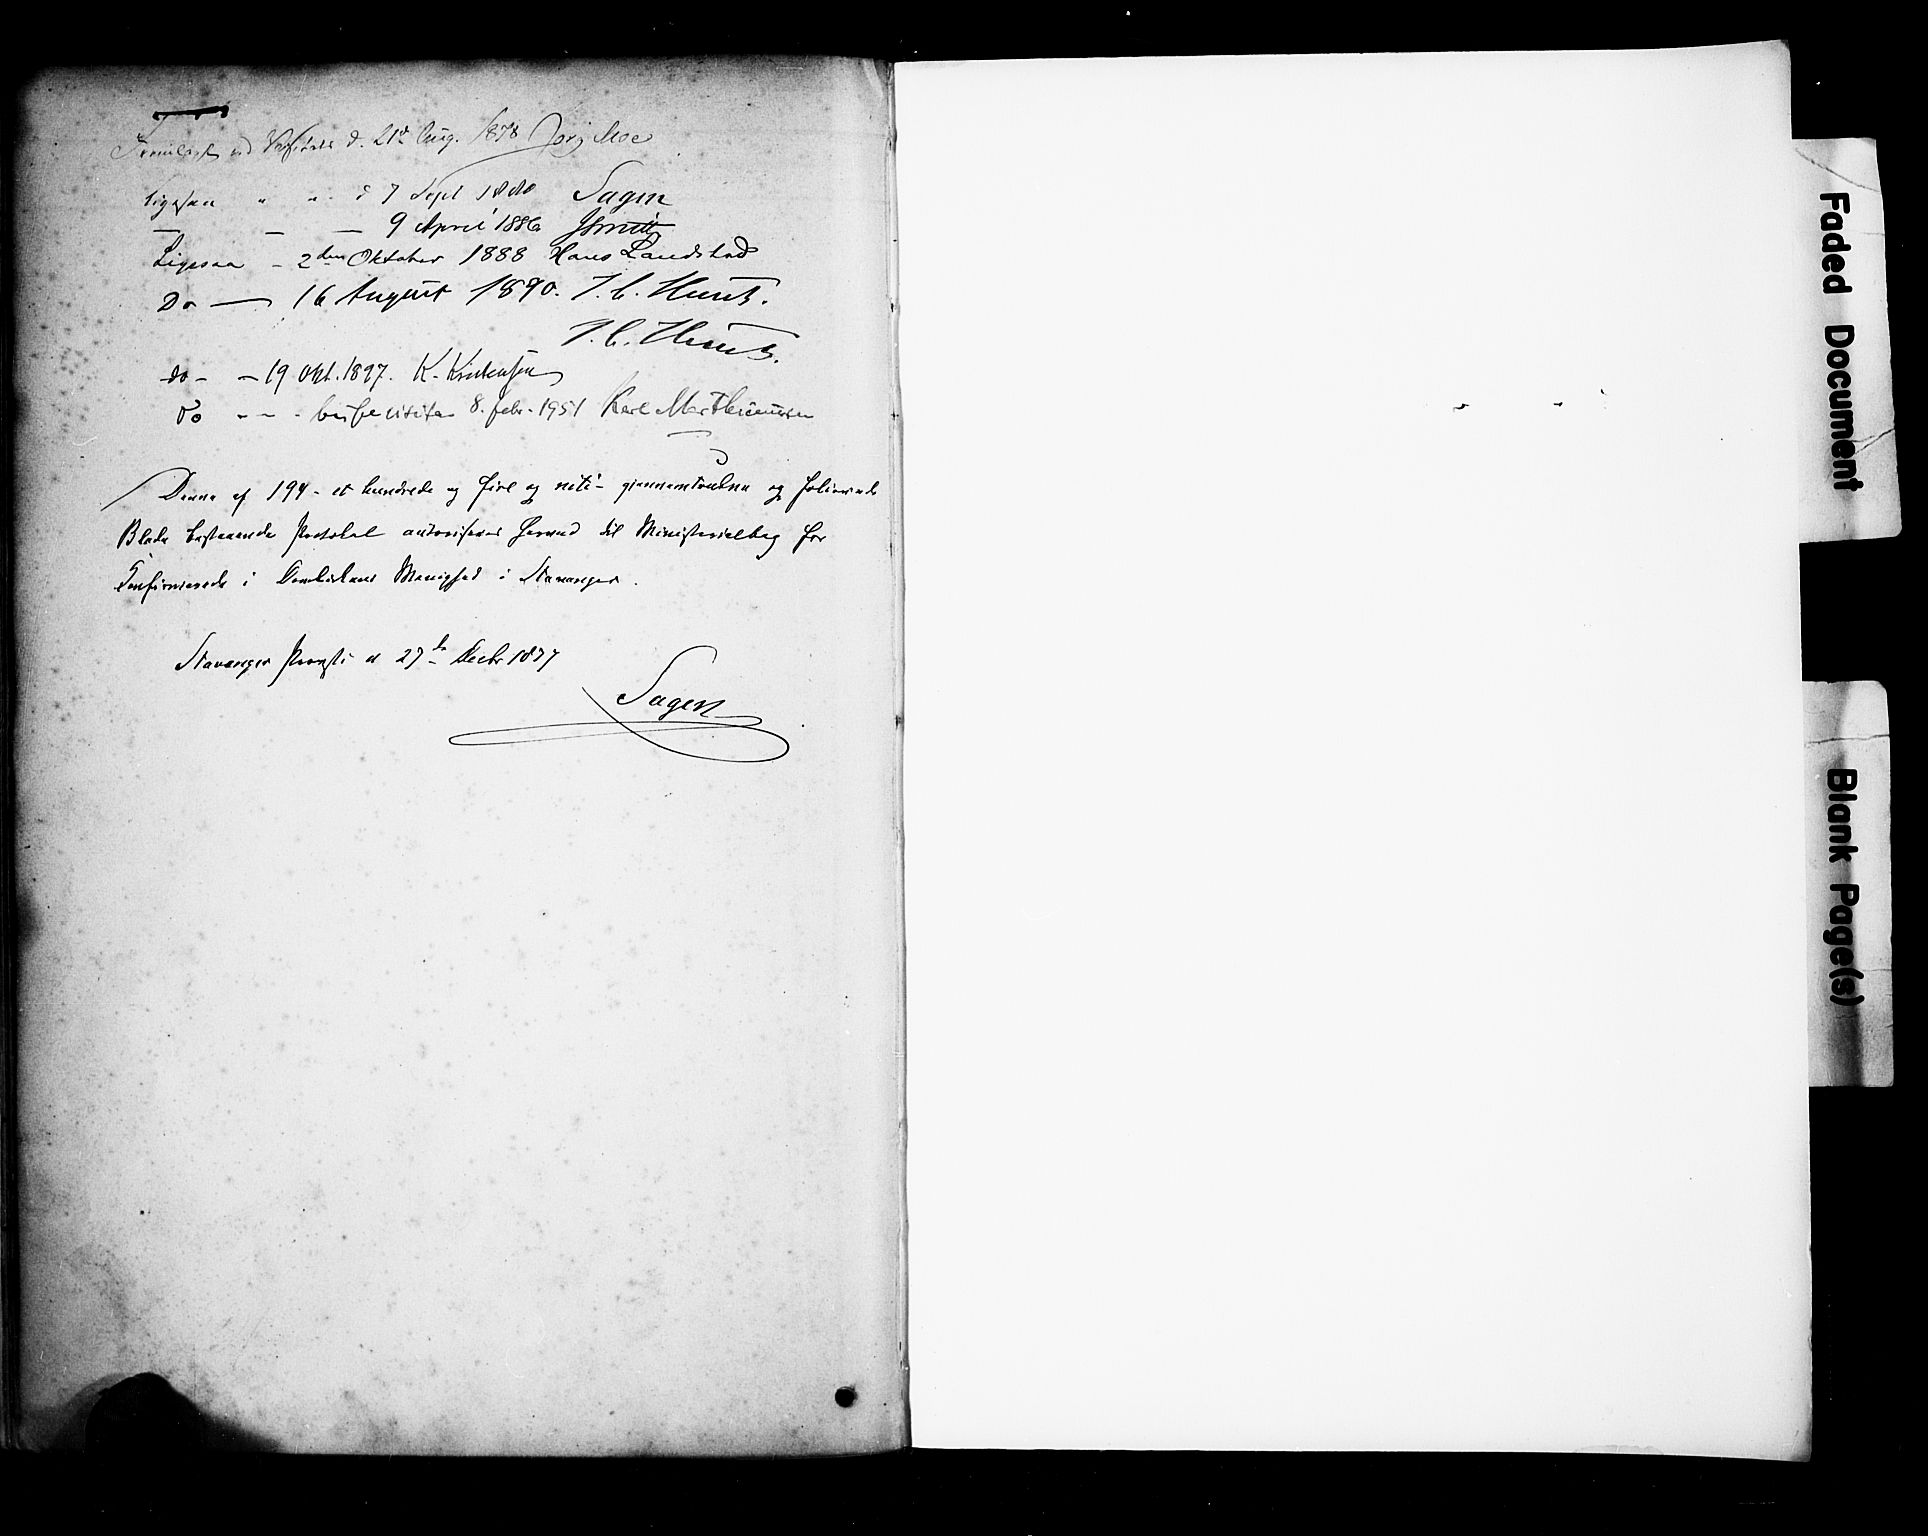 Fremlagt ved Visitats d. 21de Aug. 1878 Jørg Moe
Ligesaa " " d 7 Sept 1880 Sagen
— — — 9 April 1886
Ligesaa - 2den Oktober 1888 Hans Landstad
Do — 16 August 1890. J. C. Heuch.
J. C. Heuch.
do - - 19 Okt. 1897. K. Kristensen
Do " - - bispevisitas 8. febr. 1951 Karl Marthinussen
Denne af 194 - et hundrede og fire og niti - gjennemtrukne og folierede
Blade bestaaende Protokol autoriseres herved til Ministerialbog for
Konfirmerede i Domkirkens Menighed i Stavanger.
Stavanger Provsti d 27de Decbr 1877
Sagen
Faded Document
Blank Page(s)